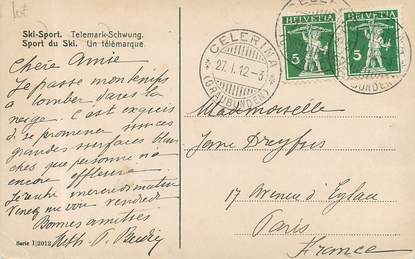 Ski-Sport. Telemark-Schwung.
Sport du Ski. Un télémarque
Chère Amie
Je passe mon temps
à tomber dans la
neige. C'est exquis
de se promener sur ces
grandes surfaces blan
ches que personne n'a
encore
Je rentre mercredi matin
Venez me voir vendredi
Bonnes amitiés
Serie I 2012
CELERINA
27.I.12-3
(GRAUBÜNDEN)
HELVETIA
5
HELVETIA
5
Mademoiselle
Dreyfus
17 Avenue d'Eylau
Paris
France